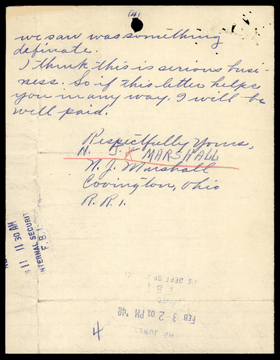 (4)
we saw was something
definate.
I think this is serious busi-
ness. So if this letter helps
you in any way. I will be
will paid.
Respectfully Yours,
N. J. MARSHALL
N. J. Marshall
Covington, Ohio
R. R. 1.
11 11 30 AM
INTERNAL SECURITY
F.B.I.
FEB 3 2 01 PM '48
4